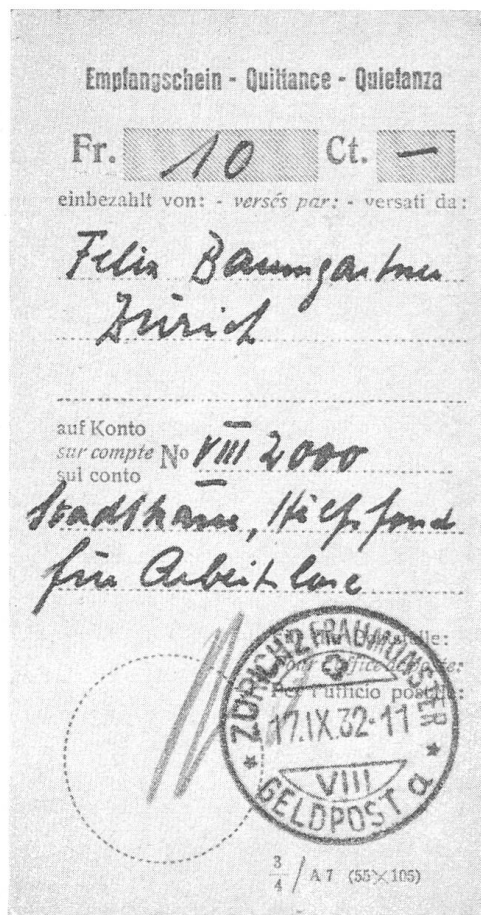 Empfangschein - Quittance - Quietanza
Fr. 10 Ct. —
einbezahlt von: - versés par: - versati da:
Felix Baumgartner
Zürich
auf Konto
sur compte No VIII 2000
sul conto
Hilfsfond
für Arbeitslose
Pour l'office de poste:
Per l'ufficio postale:
ZÜRICH 2 FRAUMÜNSTER
17.IX.32-11
VIII
GELDPOST a
3/4 / A 7 (55×105)